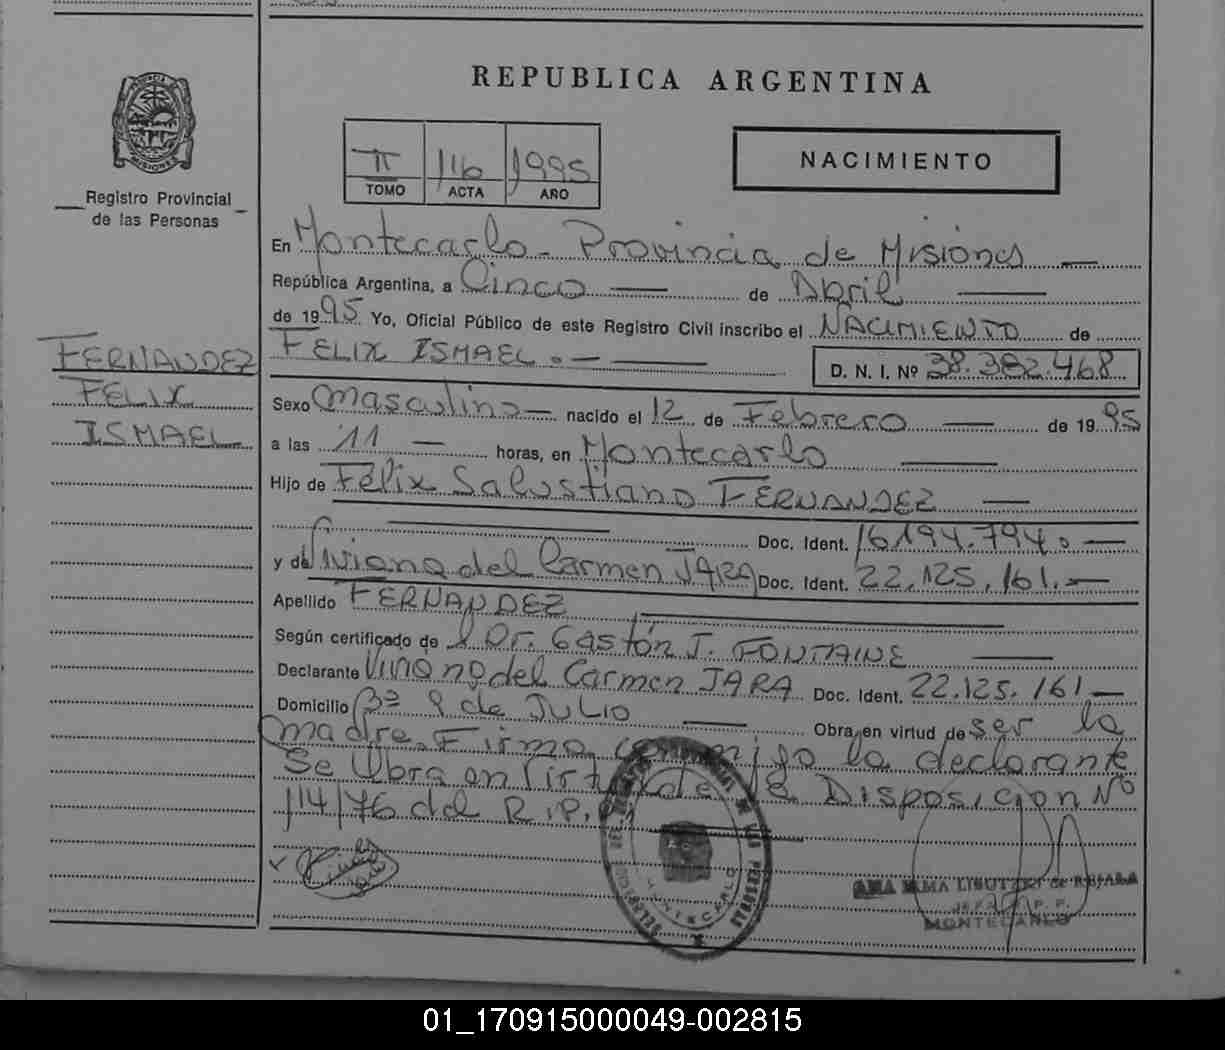 REPUBLICA ARGENTINA
PROVINCIA DE
MISIONES
Registro Provincial
de las Personas
II 116 1995
TOMO ACTA AÑO
NACIMIENTO
En Montecarlo - Provincia de Misiones —
República Argentina, a Cinco — de Abril —
de 1995 Yo, Oficial Público de este Registro Civil inscribo el NACIMIENTO de
FERNANDEZ
FELIX
ISMAEL
FELIX ISMAEL. — — D. N. I. Nº 38.382.468
Sexo Masculino — nacido el 12 de Febrero — de 1995
a las 11 — horas, en Montecarlo —
Hijo de Félix Salustiano FERNANDEZ —
— Doc. Ident. 16.194.794. —
y de Viviana del Carmen JARA Doc. Ident. 22.125.161. —
Apellido FERNANDEZ —
Según certificado de l Dr. Gastón J. FONTAINE —
Declarante Viviana del Carmen JARA Doc. Ident. 22.125.161 —
Domicilio Bº 9 de JULIO — Obra en virtud de ser la
madre. Firma conmigo la declarante
Se Obra en virtud de la Disposición Nº
114/76 del R.P.
MONTECARLO
MONTECARLO
01_170915000049-002815